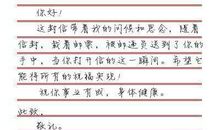 你好!
这封信带着我的问候和思念,随着
信封,载着邮票,被邮递员送到了你的
手中,当你打开信的这一瞬间,希望它
能将所有的祝福实现!
祝你事业有成,身体健康。
此致,
敬礼。